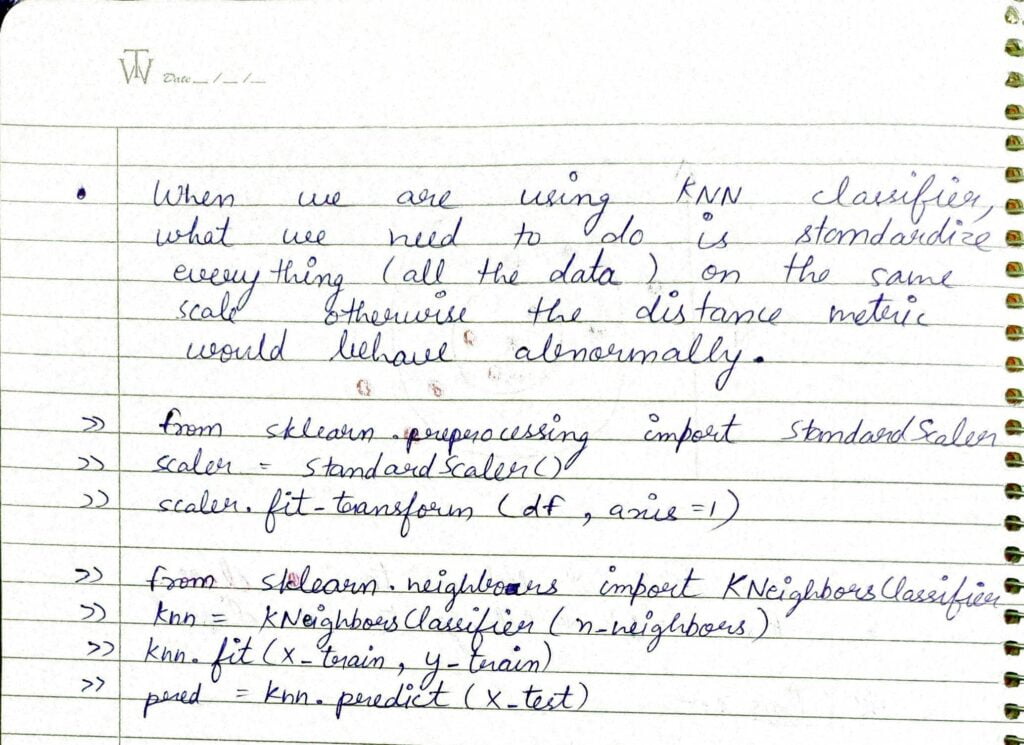 TW Date __/__/__
• When we are using KNN classifier,
what we need to do is standardize
everything (all the data) on the same
scale otherwise the distance metric
would behave abnormally.
>> from sklearn.preprocessing import StandardScaler
>> scaler = StandardScaler()
>> scaler.fit_transform (df, axis=1)
>> from sklearn.neighbors import KNeighborsClassifier
>> knn = KNeighborsClassifier (n_neighbors)
>> knn.fit (X_train, y_train)
>> pred = knn.predict (X_test)